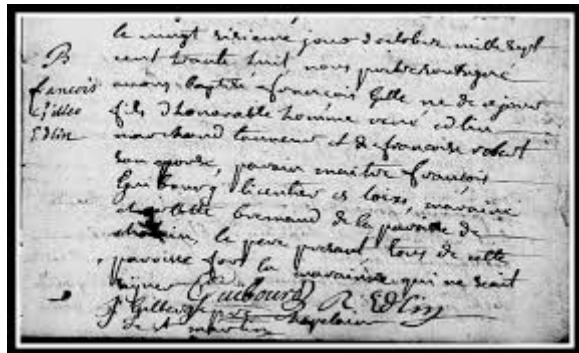 B
francois
Gilles
Edlin
le vingt sixieme jour d'octobre mille sept
cent trente huit nous
avons baptisé francois Gille né de ce jour
fils d'honorable homme rené edlin
marchand tanneur et de francoise robert
son epouse, parain maitre francois
Guibourg licentier es loix, maraine
charlotte bremand de la paroisse de
le pere present tous de cette
paroisse fors la maraine qui ne scait
signer
Guibourg R Edlin
chapelain
de st martin